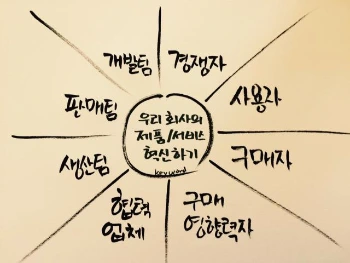 개발팀
경쟁자
판매팀
사용자
우리 회사의
제품/서비스
혁신하기
keyword
생산팀
구매자
협력
업체
구매
영향력자